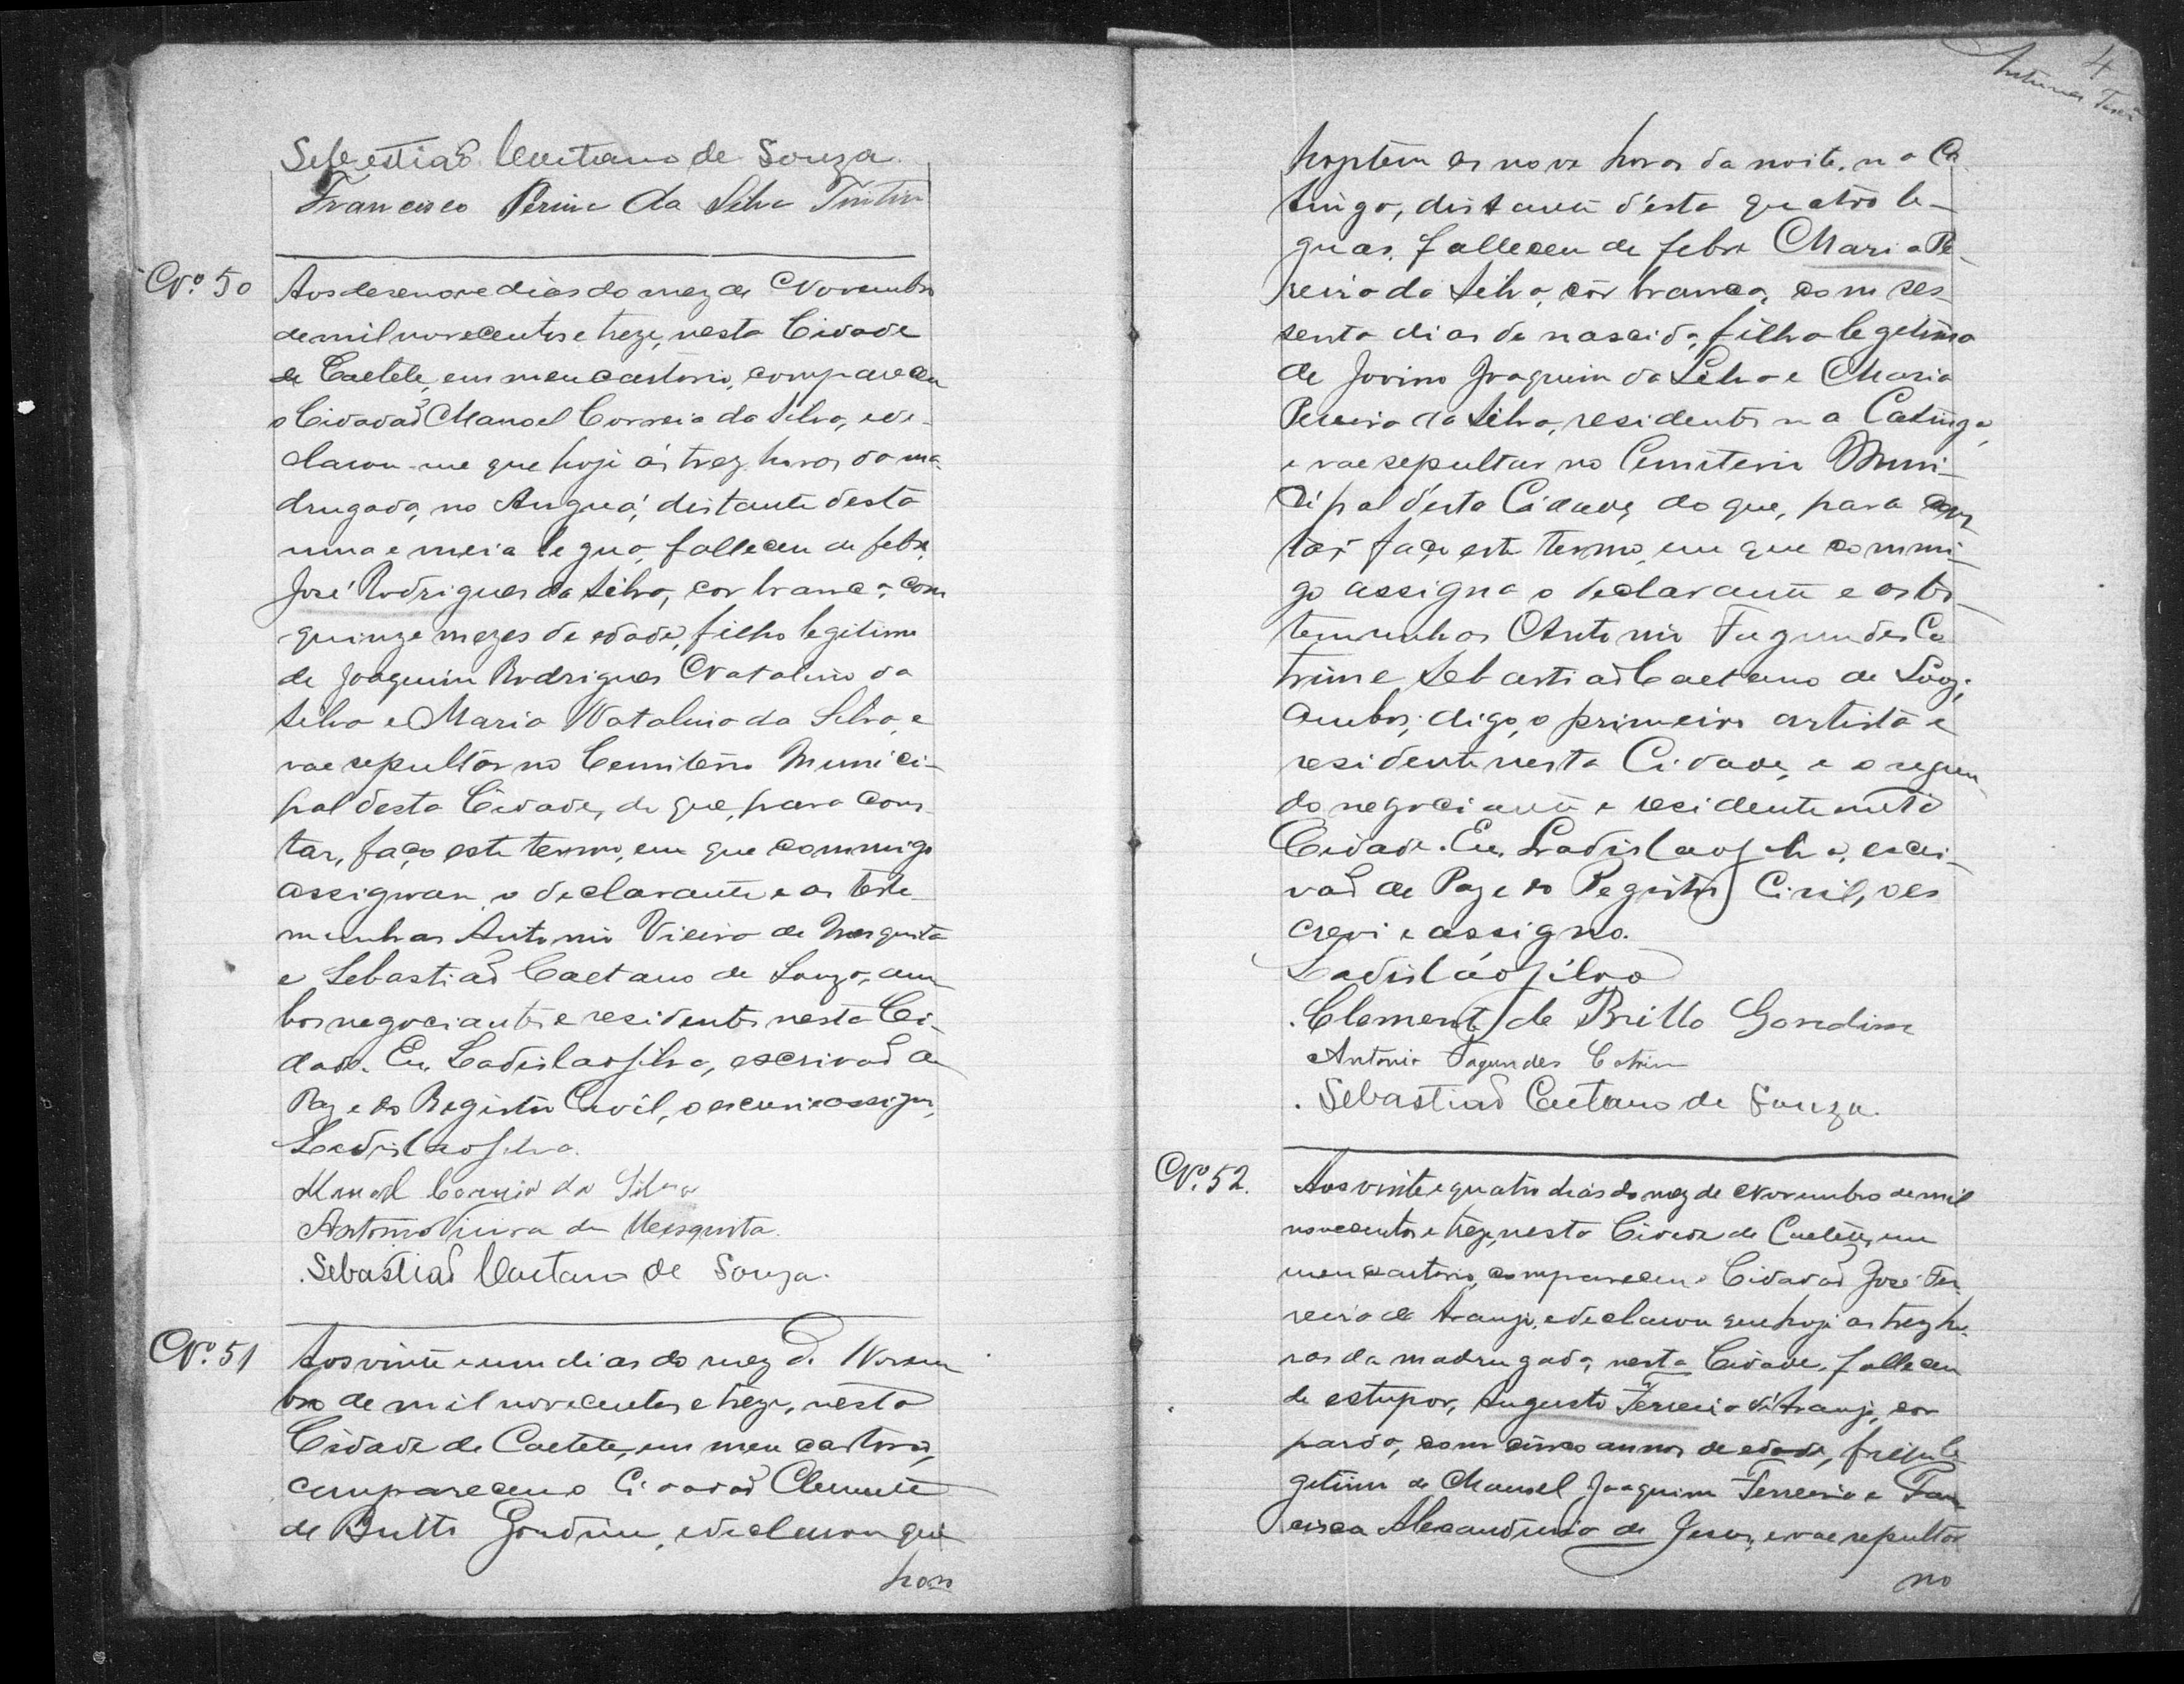 Sebastião Caetano de Souza.
Francisco da Silva
Nº 50
Aos desenove dias do mez de Novembro
de mil novecentos e treze, nesta Cidade
de Caeteté, em meu cartorio, compareceu
o Cidadaõ Manoel Correia da Silva, e de-
clarou-me que hoje ás trez horas da ma-
drugada, no Anguá, distante desta
uma e meia legua, falleceu de febre,
José Rodrigues da Silva, cor branca, com
quinze mezes de edade, filho legitimo
de Joaquim Rodrigues Natalino da
Silva e Maria Natalina da Silva, e
vae sepultar no Cemiterio Munici-
pal desta Cidade, do que, para cons
tar, faço este termo, em que commigo
assignam o declarante e as teste-
munhas Antonio Vieira de Mesquita
e Sebastiaõ Caetano de Souza, am
bos negociantes e residentes nesta Ci-
dade. Eu, Ladislao Silva, escrivaõ de
Paz e do Registro Civil, o escrevi e assigno,
Ladislao Silva.
Manoel Correia da Silva
Antonio Vieira de Mesquita.
Sebastião Caetano de Souza.
Nº 51
Aos vinte e um dias do mez de Novem
bro de mil novecentos e treze, nesta
Cidade de Caeteté, em meu cartorio,
compareceu o Cidadaõ Clemente
de Britto Gondim, e declarou que
hon
4
hontem as nove horas da noite, na Ca
tinga, distante d'esta quatro le-
guas, falleceu de febre Maria Pe-
reira da Silva, côr branca, com ses-
senta dias de nascida, filha legitima
de Jovino Joaquim da Silva e Maria
Pereira da Silva, residentes na Catinga,
e vae sepultar no Cemiterio Muni-
cipal d'esta Cidade, do que, para cons
tar, faço este termo, em que commi-
go assigna o declarante e as tes-
temunhas Antonio Fagundes Ca
trim e Sebastiaõ Caetano de Souza,
ambos, digo, o primeiro artista e
residente nesta Cidade, e o segun
do negociante e residente nesta
Cidade. Eu, Ladislao Silva, escri-
vaõ de Paz e do Registro Civil, o es
crevi e assigno.
Ladisláo Silva
Clemente de Britto Gondim
Antonio Fagundes Catrim
Sebastião Caetano de Souza.
Nº 52.
Aos vinte e quatro dias do mez de Novembro de mil
novecentos e treze, nesta Cidade de Caeteté, em
meu cartorio, compareceu o Cidadaõ José Fer
reira de Araujo, e declarou que hoje as trez ho-
ras da madrugada, nesta Cidade, falleceu
de estupor, Augusto Ferreira d'Araujo, cor
parda, com cinco annos de edade, filho le
gitimo de Manoel Joaquim Ferreira e Fran
cisca Alexandrina de Jesus, e vae sepultar
no